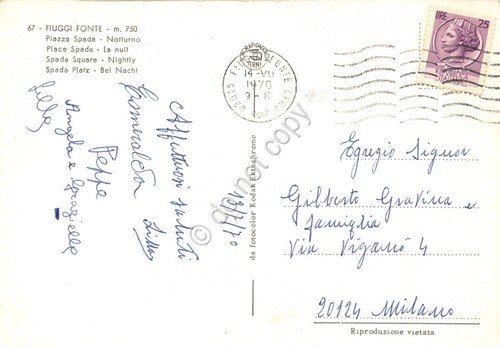 67 - FIUGGI FONTE - m. 750
Piazza Spada - Notturno
Place Spada - La nuit
Spada Square - Nightly
Spada Platz - Bel Nacht
LIRE 25
FIUGGI FONTE (FR)
14-VII
1970
9-10
Affettuosi saluti
Esmeralda
Peppe
Angela e Graziella
13/7/70
da fotocolor Kodak Ektachrome
do not copy
Egregio Signor
Gilberto Gravina e
famiglia
Via Viganò 4
20124 Milano
Riproduzione vietata